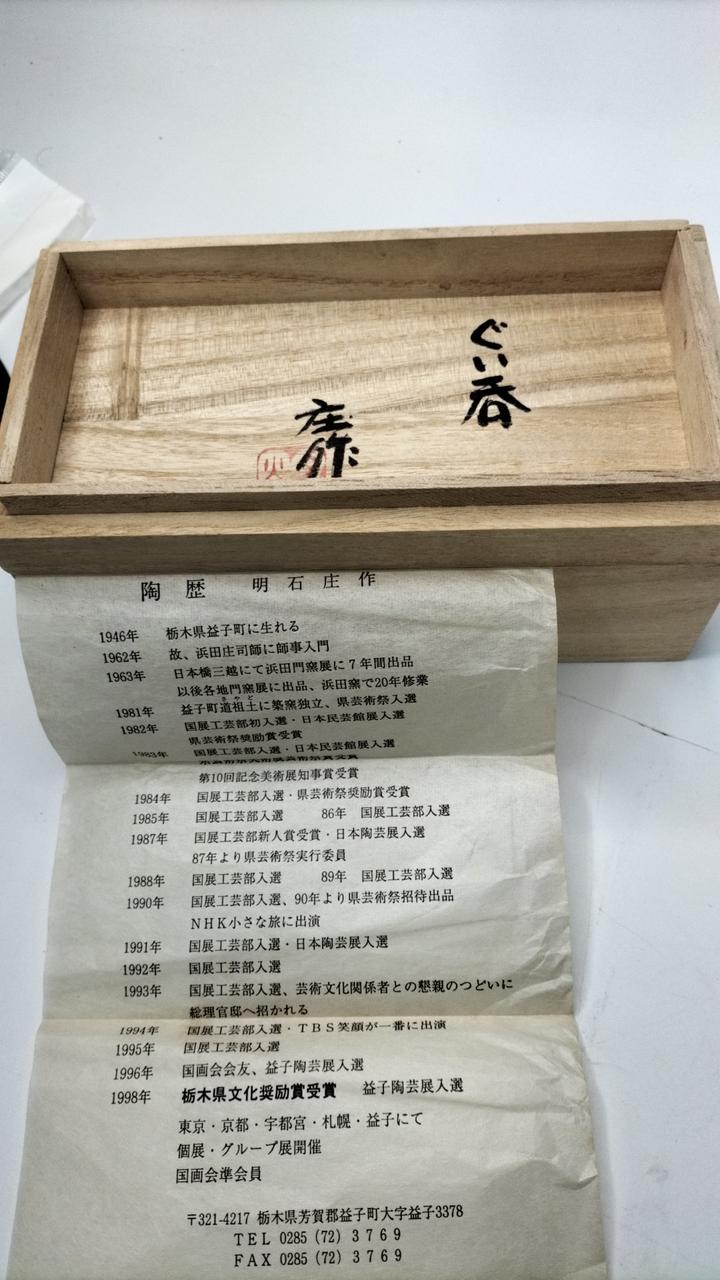 ぐい呑
庄作
陶歴 明石庄作
1946年 栃木県益子町に生れる
1962年 故、浜田庄司師に師事入門
1963年 日本橋三越にて浜田門窯展に7年間出品
以後各地門窯展に出品、浜田窯で20年修業
さやど
1981年 益子町道祖土に築窯独立、県芸術祭入選
1982年 国展工芸部初入選・日本民芸館展入選
県芸術祭奨励賞受賞
1983年 国展工芸部入選・日本民芸館展入選
第10回記念美術展知事賞受賞
1984年 国展工芸部入選・県芸術祭奨励賞受賞
1985年 国展工芸部入選 86年 国展工芸部入選
1987年 国展工芸部新人賞受賞・日本陶芸展入選
87年より県芸術祭実行委員
1988年 国展工芸部入選 89年 国展工芸部入選
1990年 国展工芸部入選、90年より県芸術祭招待出品
NHK小さな旅に出演
1991年 国展工芸部入選・日本陶芸展入選
1992年 国展工芸部入選
1993年 国展工芸部入選、芸術文化関係者との懇親のつどいに
総理官邸へ招かれる
1994年 国展工芸部入選・TBS笑顔が一番に出演
1995年 国展工芸部入選
1996年 国画会会友、益子陶芸展入選
1998年 栃木県文化奨励賞受賞 益子陶芸展入選
東京・京都・宇都宮・札幌・益子にて
個展・グループ展開催
国画会準会員
〒321-4217 栃木県芳賀郡益子町大字益子3378
TEL 0285(72)3769
FAX 0285(72)3769